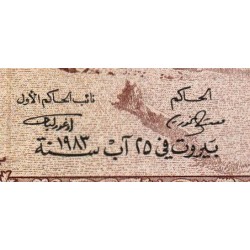 الحاكم نائب الحاكم الأول
بيروت في ٢٥ آب سنة ١٩٨٣